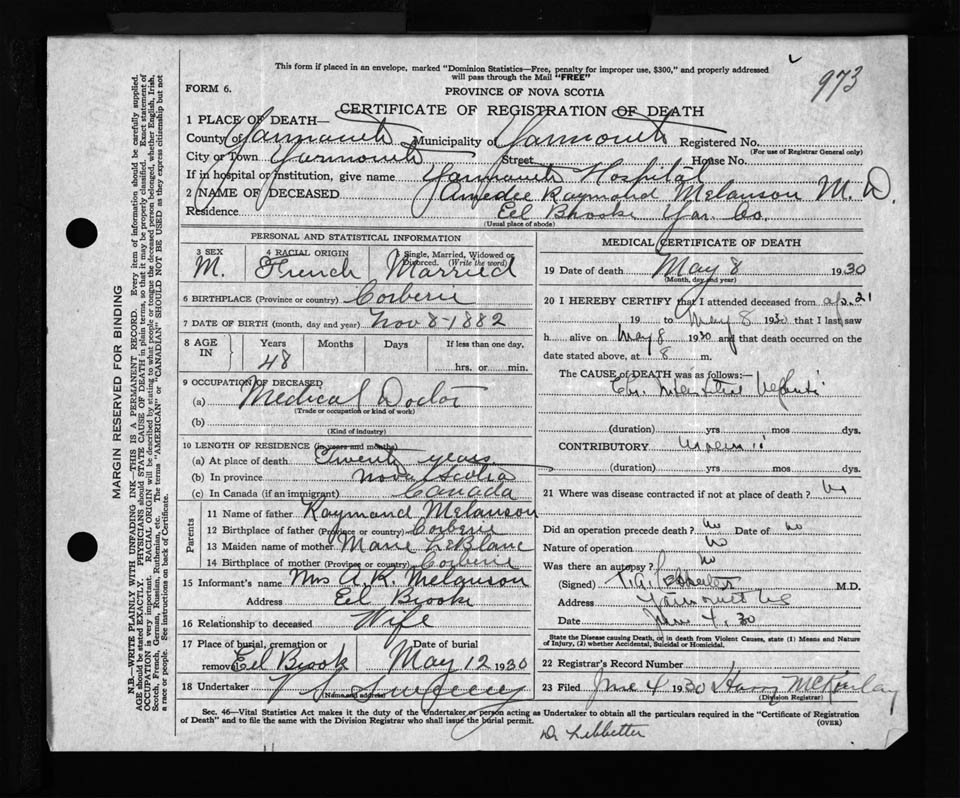 This form if placed in an envelope, marked "Dominion Statistics—Free, penalty for improper use, $300," and properly addressed
will pass through the Mail "FREE"
973
FORM 6.
PROVINCE OF NOVA SCOTIA
CERTIFICATE OF REGISTRATION OF DEATH
1 PLACE OF DEATH—
County of Yarmouth Municipality of Yarmouth Registered No.
(For use of Registrar General only)
City or Town Yarmouth Street House No.
If in hospital or institution, give name Yarmouth Hospital
2 NAME OF DECEASED Amedee Raymond Melanson M.D.
Residence Eel Brook Yar. Co.
(Usual place of abode)
PERSONAL AND STATISTICAL INFORMATION
3 SEX M. 4 RACIAL ORIGIN French 5 Single, Married, Widowed or Divorced. (Write the word) Married
6 BIRTHPLACE (Province or country) Corberie
7 DATE OF BIRTH (month, day and year) Nov 8-1882
8 AGE IN Years 48 Months Days If less than one day, hrs. or min.
9 OCCUPATION OF DECEASED
(a) Medical Doctor
(Trade or occupation or kind of work)
(b)
(Kind of industry)
10 LENGTH OF RESIDENCE (in years and months)
(a) At place of death Twenty years
(b) In province Nova Scotia
(c) In Canada (if an immigrant) Canada
Parents
11 Name of father Raymond Melanson
12 Birthplace of father (Province or country) Corberie
13 Maiden name of mother Marie LeBlanc
14 Birthplace of mother (Province or country) Corberie
15 Informant's name Mrs A.R. Melanson
Address Eel Brook
16 Relationship to deceased Wife
17 Place of burial, cremation or removal Eel Brook Date of burial May 12 1930
18 Undertaker V S Sweeney
(Name and address)
MEDICAL CERTIFICATE OF DEATH
19 Date of death May 8 1930
(Month, day and year)
20 I HEREBY CERTIFY that I attended deceased from Ap. 21
19 to May 8 1930 that I last saw
h alive on May 8 1930 and that death occurred on the
date stated above, at 8 m.
The CAUSE OF DEATH was as follows:—
(duration) yrs mos dys.
CONTRIBUTORY
(duration) yrs mos dys.
21 Where was disease contracted if not at place of death?
Did an operation precede death? No Date of no
Nature of operation No
Was there an autopsy? No
(Signed) M.D.
Address Yarmouth NS
Date 4, 30
State the Disease causing Death, or in death from Violent Causes, state (1) Means and Nature
of Injury, (2) whether Accidental, Suicidal or Homicidal.
22 Registrar's Record Number
23 Filed June 4 1930 Harry McKinlay
(Division Registrar)
Sec. 46—Vital Statistics Act makes it the duty of the Undertaker or person acting as Undertaker to obtain all the particulars required in the "Certificate of Registration
of Death" and to file the same with the Division Registrar who shall issue the burial permit.
(OVER)
Dr Lebbetter
MARGIN RESERVED FOR BINDING
N.B.—WRITE PLAINLY WITH UNFADING INK—THIS IS A PERMANENT RECORD. Every item of information should be carefully supplied.
AGE should be stated EXACTLY. PHYSICIANS should STATE CAUSE OF DEATH in plain terms, so that it may be properly classified. Exact statement of
OCCUPATION is very important. RACIAL ORIGIN will be described by stating to what people or tongue the deceased person belonged, whether English, Irish,
Scotch, French, German, Russian, Ruthenian, etc. The terms "AMERICAN" or "CANADIAN" SHOULD NOT BE USED as they express citizenship but not
a race or people. See instructions on back of Certificate.